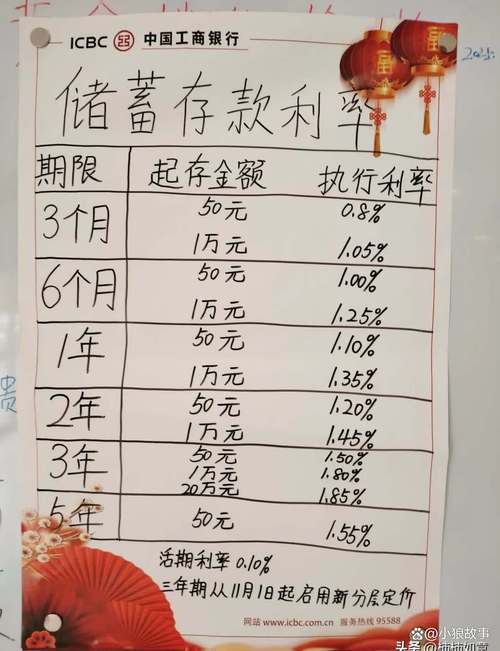 ICBC 中国工商银行
储蓄存款利率
期限 起存金额 执行利率
3个月 50元 0.8%
1万元 1.05%
6个月 50元 1.00%
1万元 1.25%
1年 50元 1.10%
1万元 1.35%
2年 50元 1.20%
1万元 1.45%
3年 50元 1.50%
1万元 1.80%
20万元 1.85%
5年 50元 1.55%
活期利率 0.10%
三年期从11月1日起启用新分层定价
网站 www.icbc.com.cn 服务热线 95588
贵
@小狼故事
头条